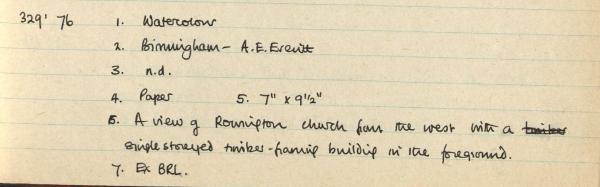 329' 76 1. Watercolour
2. Birmingham - A.E. Everitt
3. n.d.
4. Paper 5. 7" x 9 1/2"
6. A view of Rowington church from the west with a timber
single storeyed timber-framing building in the foreground.
7. Ex BRL.